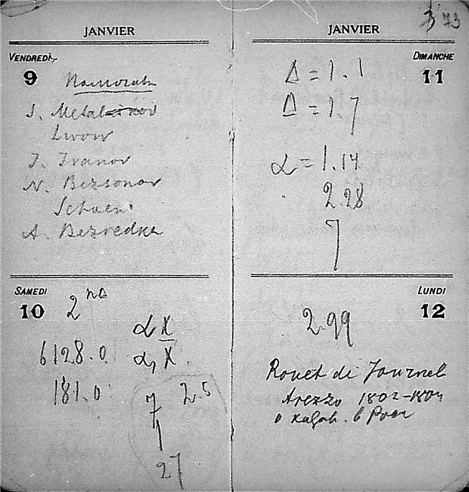 JANVIER
VENDREDI
9
S. Metalnikov
Lwow
J. Ivanov
N. Bezsonov
A. Bezredka
SAMEDI
10
2nd
α X
6128.0 α, X
181.0
7 2.5
1
27
JANVIER
373
DIMANCHE
11
Δ = 1.1
Δ = 1.7
α = 1.14
2.28
7
LUNDI
12
2.99
Rouet de Journel
Arezzo 1802-1804